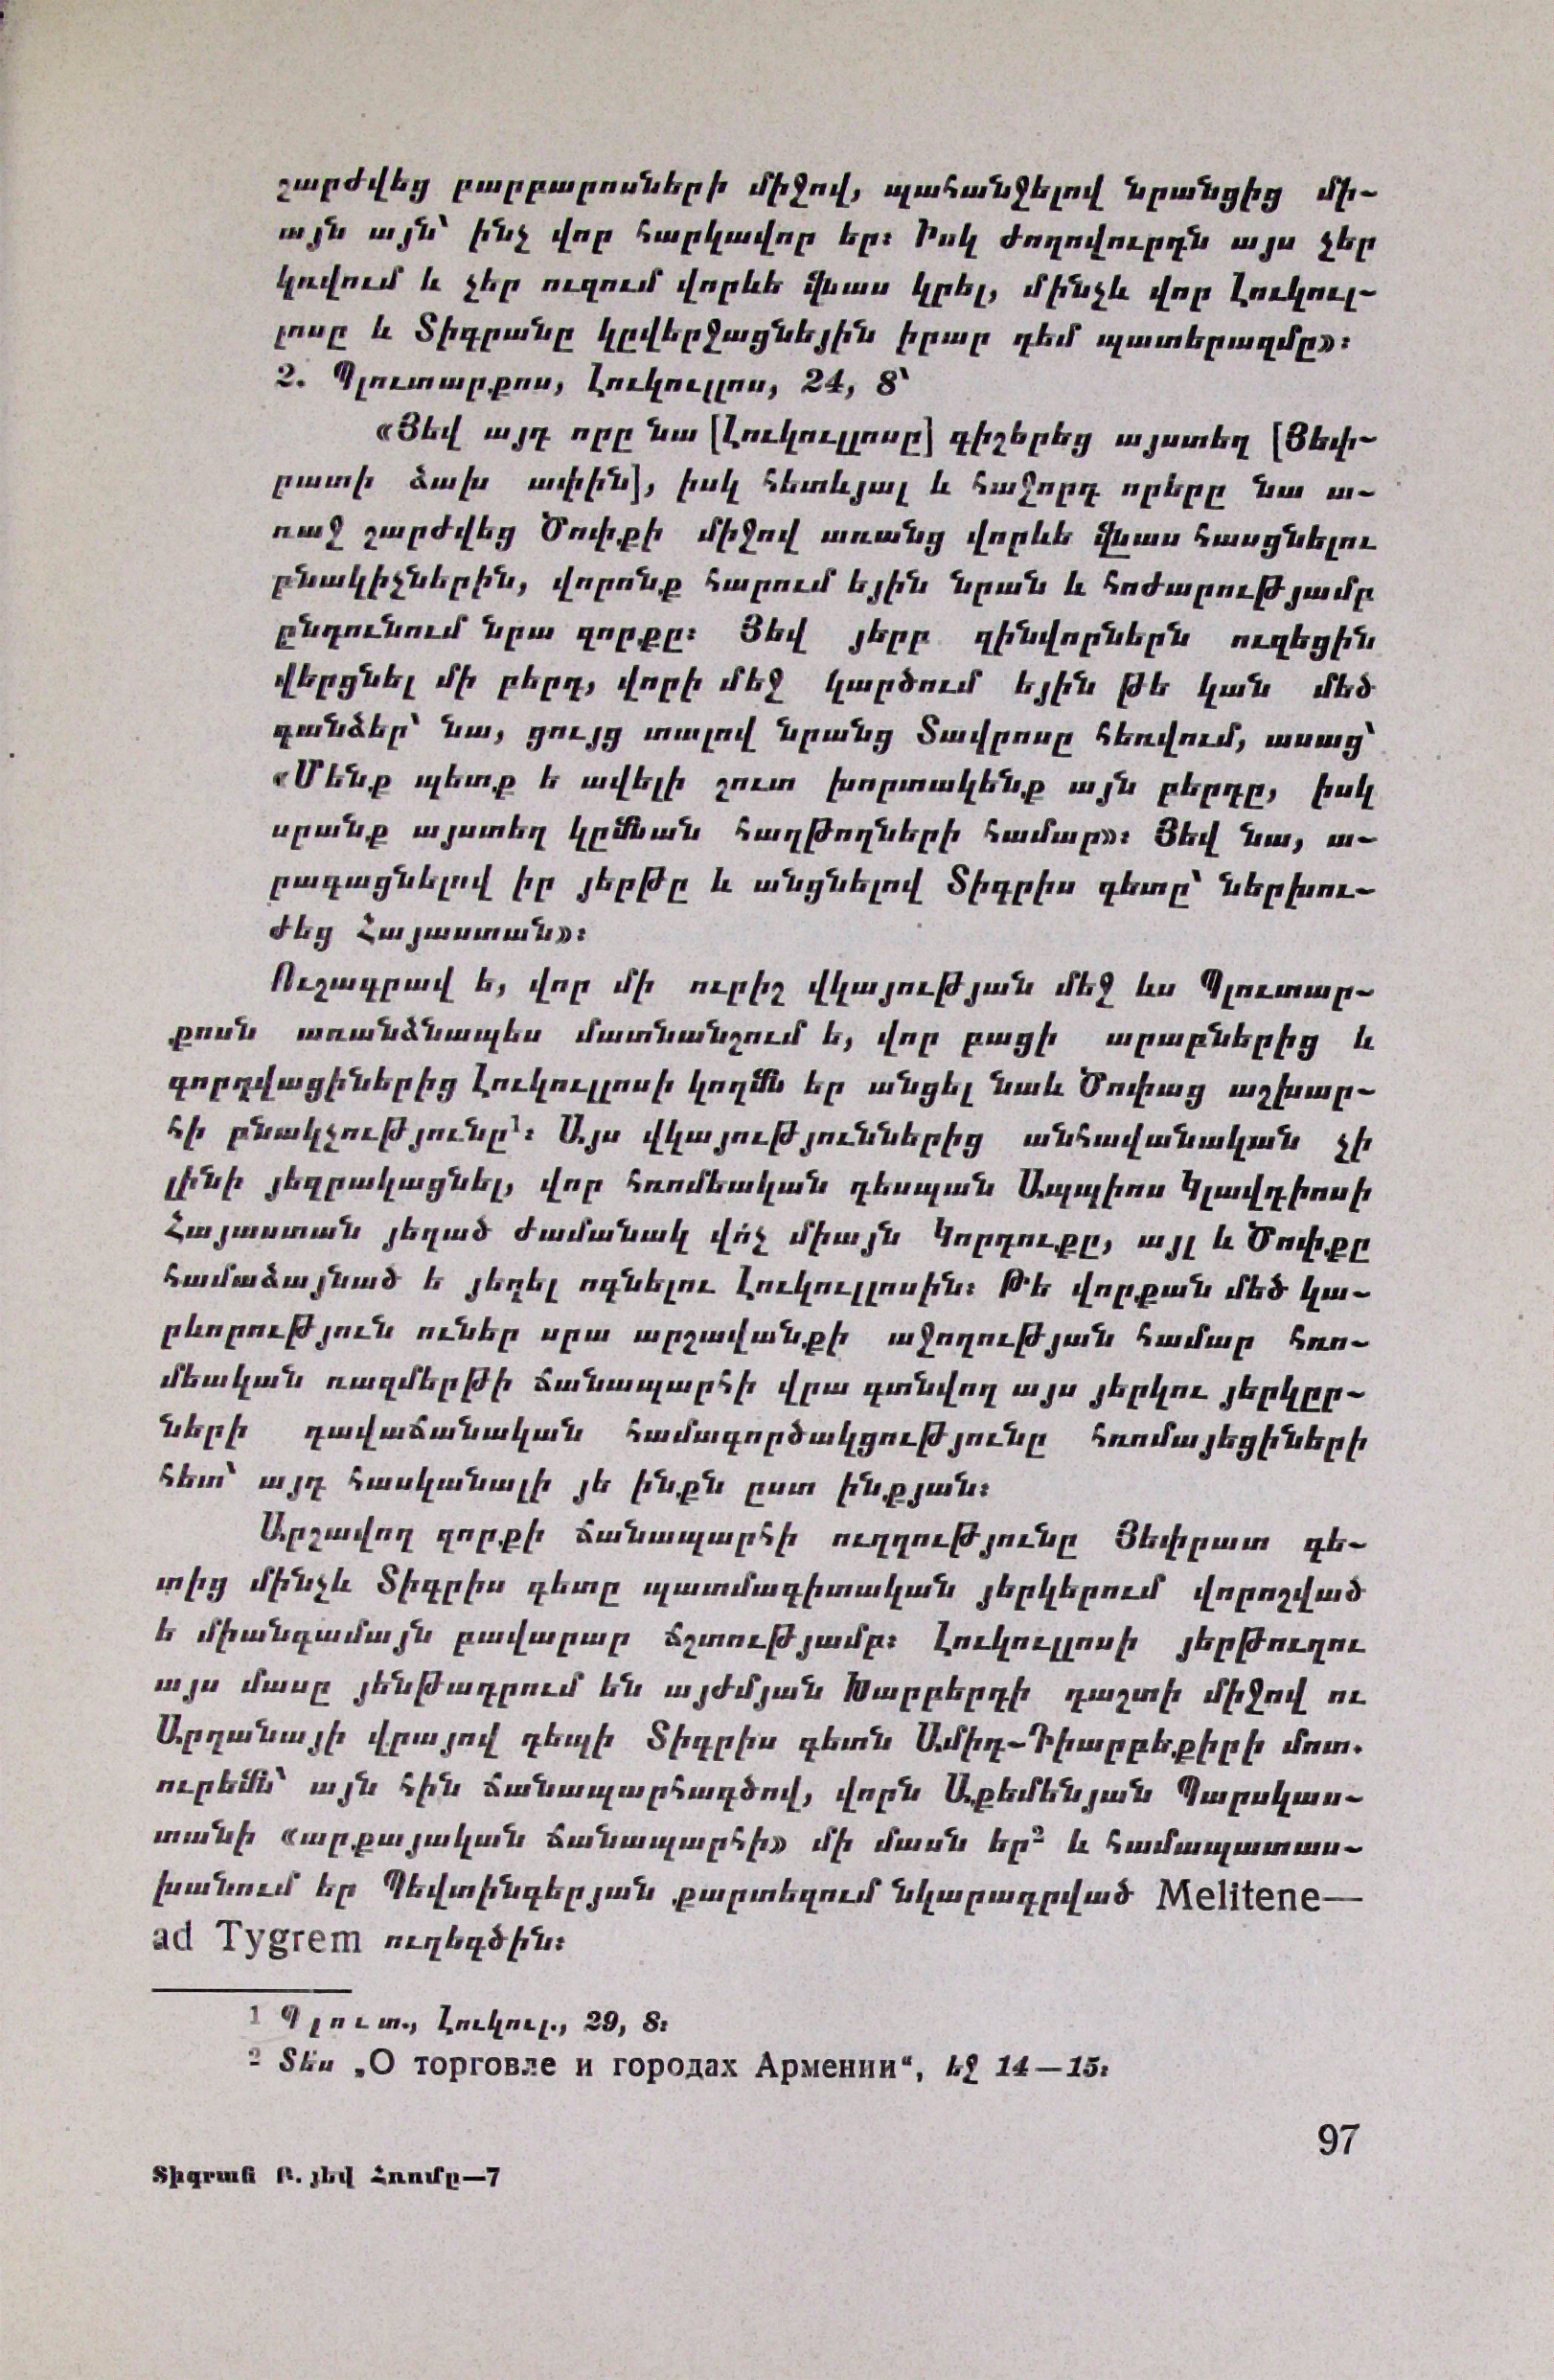 շարժվեց բարբարոսների միջով, պահանջելով նրանցից մի-
այն այն՝ ինչ վոր հարկավոր եր։ Իսկ ժողովուրդն այս չեր
կռվում և չեր ուզում վորևե վնաս կրել, մինչև վոր Լուկուլ-
լոսը և Տիգրանը կըվերջացնեյին իրար դեմ պատերազմը»։
2. Պլուտարքոս, Լուկուլլոս, 24, 8՝
«Յեվ այդ որը նա [Լուկուլլոսը] գիշերեց այստեղ [Յեփ-
րատի ձախ ափին], իսկ հետևյալ և հաջորդ որերը նա ա-
ռաջ շարժվեց Ծոփքի միջով առանց վորևե վնաս հասցնելու
բնակիչներին, վորոնք հարում եյին նրան և հոժարությամբ
ընդունում նրա զորքը։ Յեվ յերբ զինվորներն ուզեցին
վերցնել մի բերդ, վորի մեջ կարծում եյին թե կան մեծ
գանձեր՝ նա, ցույց տալով նրանց Տավրոսը հեռվում, ասաց՝
«Մենք պետք ե ավելի շուտ խորտակենք այն բերդը, իսկ
սրանք այստեղ կըմնան հաղթողների համար»։ Յեվ նա, ա-
րագացնելով իր յերթը և անցնելով Տիգրիս գետը՝ ներխու-
ժեց Հայաստան»։
Ուշագրավ ե, վոր մի ուրիշ վկայության մեջ ևս Պլուտար-
քոսն առանձնապես մատնանշում ե, վոր բացի արաբներից և
գորդվացիներից Լուկուլլոսի կողմն եր անցել նաև Ծոփաց աշխար-
հի բնակչությունը¹։ Այս վկայություններից անհավանական չի
լինի յեզրակացնել, վոր հռոմեական դեսպան Ապպիոս Կլավդիոսի
Հայաստան յեղած ժամանակ վո՛չ միայն Կորդուքը, այլ և Ծոփքը
համաձայնած ե յեղել ոգնելու Լուկուլլոսին։ Թե վորքան մեծ կա-
րևորություն ուներ սրա արշավանքի աջողության համար հռո-
մեական ռազմերթի ճանապարհի վրա գտնվող այս յերկու յերկըր-
ների դավաճանական համագործակցությունը հռոմայեցիների
հետ՝ այդ հասկանալի յե ինքն ըստ ինքյան։
Արշավող զորքի ճանապարհի ուղղությունը Յեփրատ գե-
տից մինչև Տիգրիս գետը պատմագիտական յերկերում վորոշված
ե միանգամայն բավարար ճշտությամբ։ Լուկուլլոսի յերթուղու
այս մասը յենթադրում են այժմյան Խարբերդի դաշտի միջով ու
Արղանայի վրայով դեպի Տիգրիս գետն Ամիդ-Դիարբեքիրի մոտ.
ուրեմն՝ այն հին ճանապարհագծով, վորն Աքեմենյան Պարսկաս-
տանի «արքայական ճանապարհի» մի մասն եր² և համապատաս-
խանում եր Պեվտինգերյան քարտեզում նկարագրված Melitene—
ad Tygrem ուղեգծին։
1 Պլուտ., Լուկուլ., 29, 8։
2 Տե՛ս „О торговле и городах Армении“, եջ 14—15։
97
Տիգրան Բ. յեվ Հռոմը—7